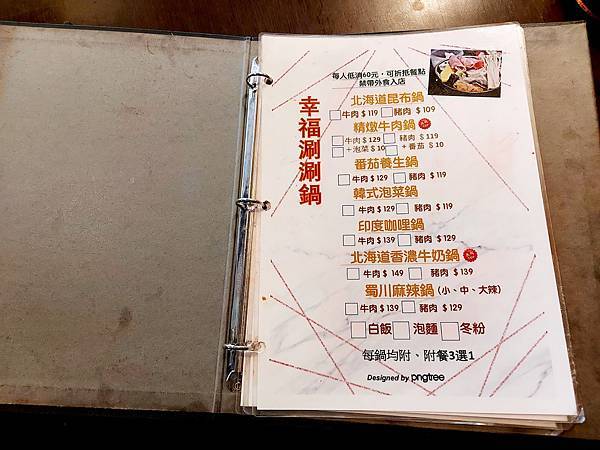 每人低消60元，可折抵餐點
禁帶外食入店
幸福涮涮鍋
北海道昆布鍋
牛肉 $ 119 豬肉 $ 109
精燉牛肉鍋
牛肉 $ 129 豬肉 $ 119
+ 泡菜 $ 10 + 番茄 $ 10
番茄養生鍋
牛肉 $ 129 豬肉 $ 119
韓式泡菜鍋
牛肉 $ 129 豬肉 $ 119
印度咖哩鍋
牛肉 $ 139 豬肉 $ 129
北海道香濃牛奶鍋
牛肉 $ 149 豬肉 $ 139
蜀川麻辣鍋(小、中、大辣)
牛肉 $ 139 豬肉 $ 129
白飯 泡麵 冬粉
每鍋均附、附餐3選1
Designed by pngtree